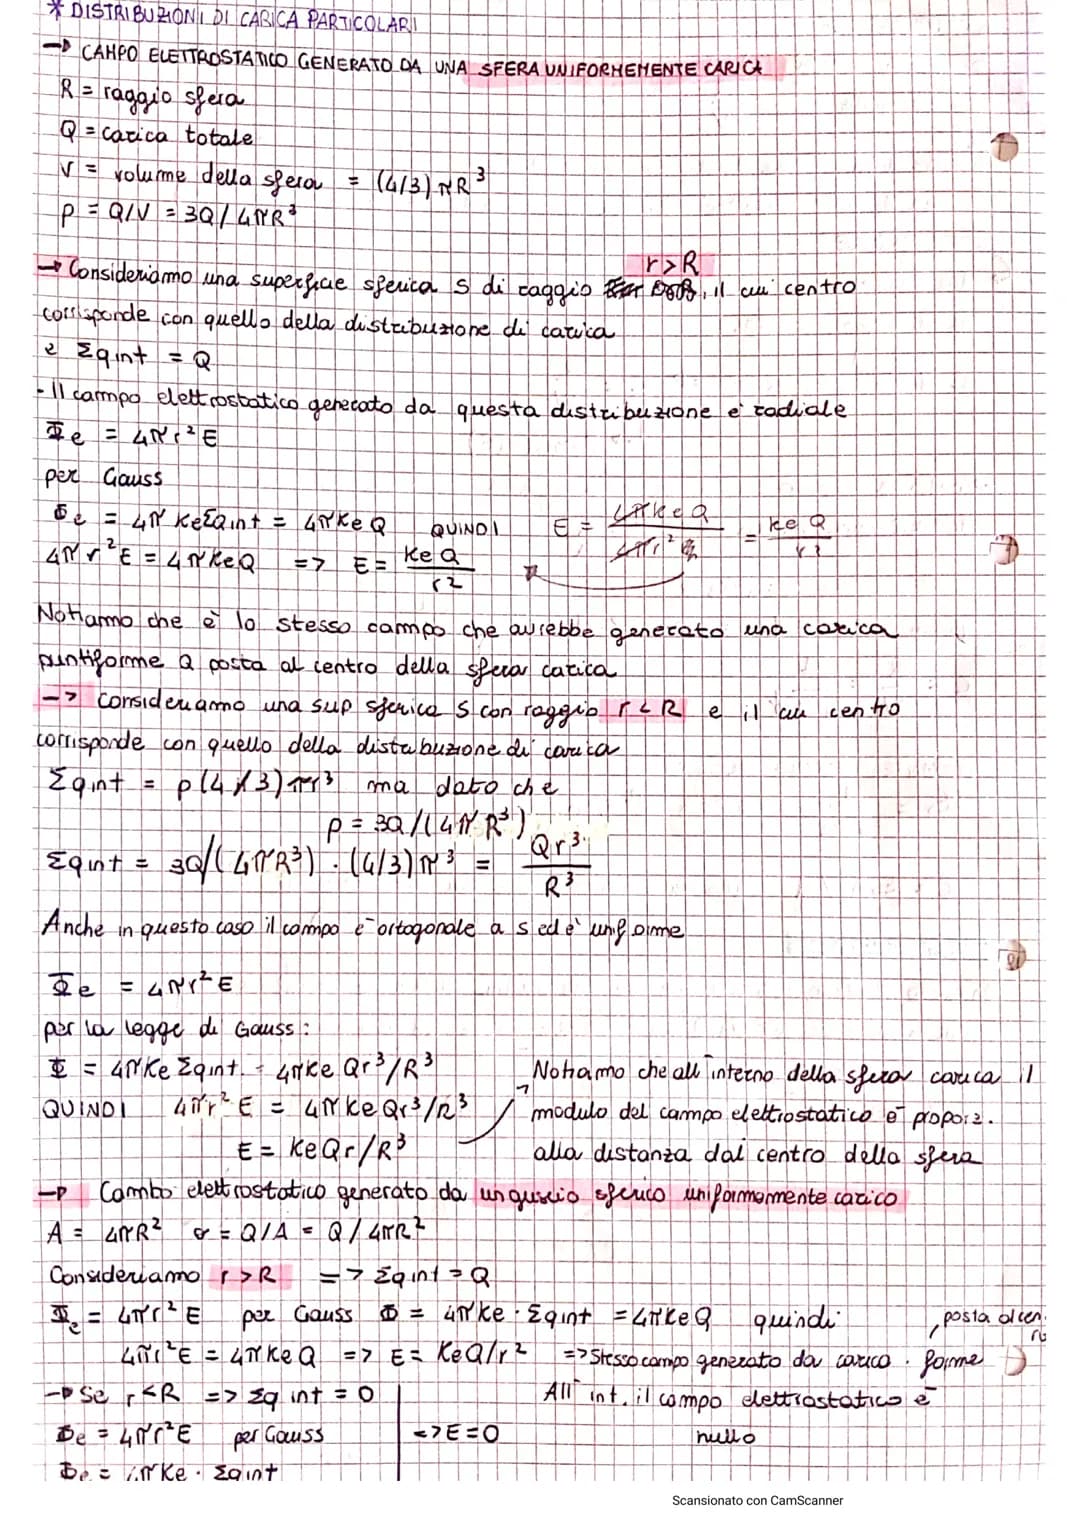 * DISTRIBUZIONI DI CARICA PARTICOLARI
→ CAMPO ELETTROSTATICO GENERATO DA UNA SFERA UNIFORMEMENTE CARICA
R = raggio sfera
Q = carica totale
V = volume della sfera = (4/3)πR³
ρ = Q/V = 3Q/4πR³
r>R
→ Consideriamo una superficie sferica S di raggio , il cui centro
corrisponde con quello della distribuzione di carica
e Σqint = Q
- Il campo elettrostatico generato da questa distribuzione è radiale
Φe = 4πr²E
per Gauss
Φe = 4π KeΣQint = 4πKeQ QUINDI E = 4πKeQ / 4πr² = KeQ / r²
4πr²E = 4πKeQ => E = KeQ / r²
Notiamo che è lo stesso campo che avrebbe generato una carica
puntiforme Q posta al centro della sfera carica
-> Consideriamo una sup sferica S con raggio r<R e il cui centro
corrisponde con quello della distribuzione di carica
Σqint = ρ(4/3)πr³ ma dato che
ρ = 3Q/(4πR³)
Σqint = 3Q/(4πR³) · (4/3)π³ = Qr³ / R³
Anche in questo caso il campo è ortogonale a S ed è uniforme
Φe = 4πr²E
per la legge di Gauss:
Φ = 4πKe Σqint = 4πKe Qr³/R³
QUINDI 4πr²E = 4πKeQr³/R³
E = KeQr/R³
Notiamo che all'interno della sfera carica il
modulo del campo elettrostatico è proporz.
alla distanza dal centro della sfera
→ Cambo elettrostatico generato da un guscio sferico uniformemente carico
A = 4πR² σ = Q/A = Q/4πR²
Consideriamo r>R => Σqint = Q
Φe = 4πr²E per Gauss Φ = 4πKe · Σqint = 4πKeQ quindi
4πr²E = 4πKeQ => E = KeQ/r² => Stesso campo generato da carica . forme , posta al cen
→ Se r<R => Σqint = 0
Φe = 4πr²E per Gauss => E=0
Φe = 4πKe · Σqint
All'int. il campo elettrostatico è
nullo
Scansionato con CamScanner